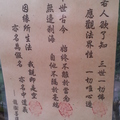 若人欲了知 三世一切佛
應觀法界性 一切唯心造
無邊剎海 自他不隔於毫端
十世古今 始終不離於當念
因緣所生法 我說即是空
亦名為假名 亦名中道義